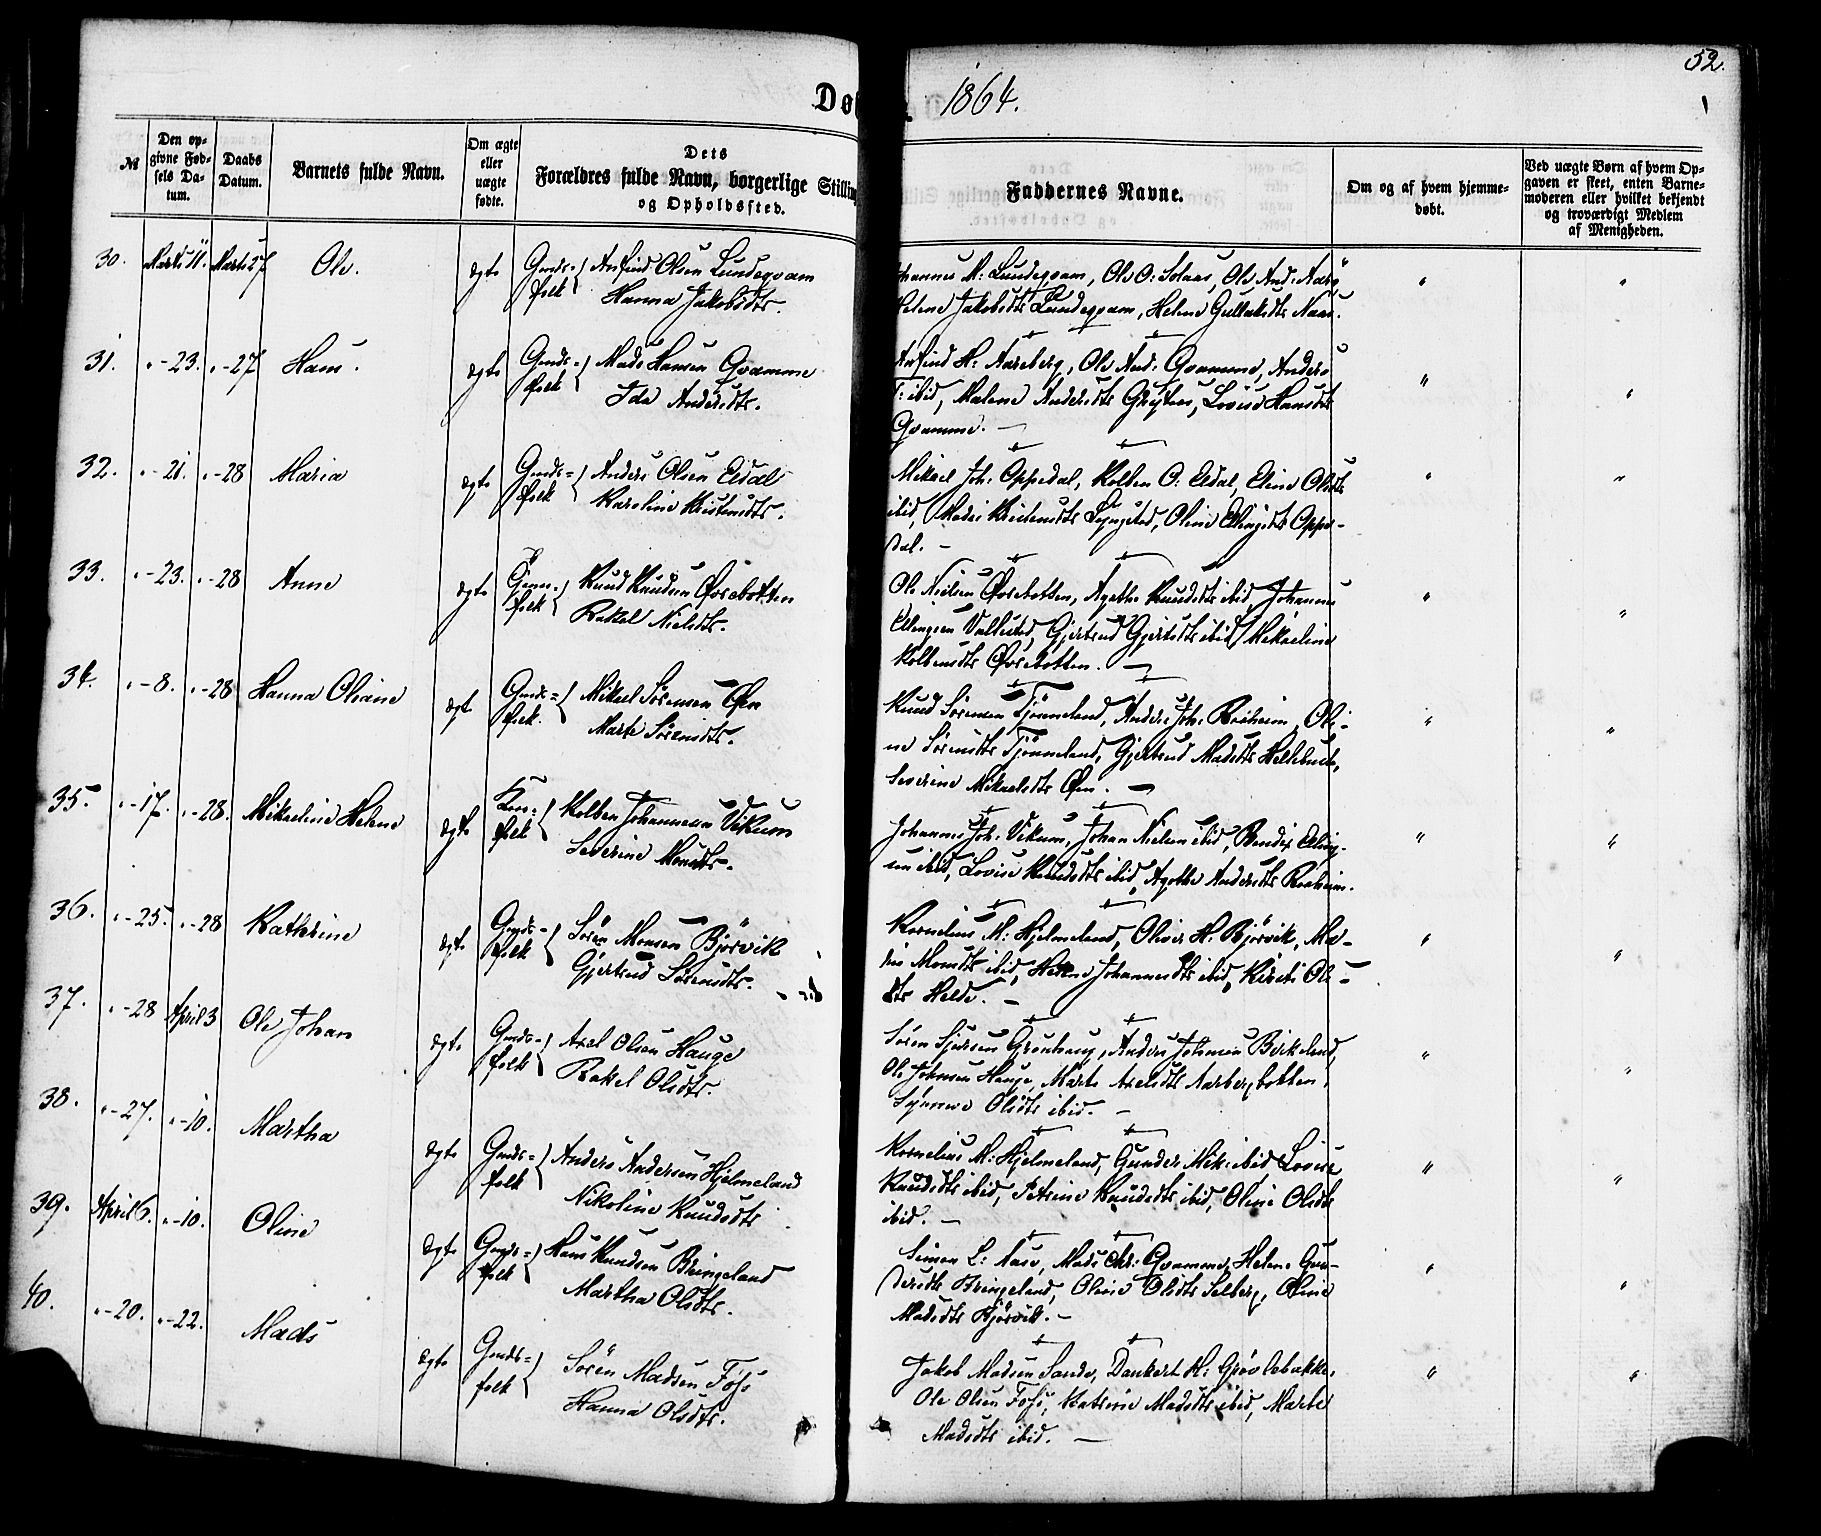 52.
Dø
1864.
№
Den op-
givne Fød-
sels Da-
tum.
Daabs
Datum.
Barnets fulde Navn.
Om ægte
eller
uægte
fødte.
Dets
Forældres fulde Navn, borgerlige Stilling
og Opholdssted.
Faddernes Navne.
Om og af hvem hjemme-
døbt.
Ved uægte Børn af hvem Op-
gaven er skeet, enten Barne-
moderen eller hvilket bekjendt
og troværdigt Medlem
af Menigheden.
30. Marts 11. Marts 27 Ole. ægte Gmds=folk Anfind Olsen Lundeqvam
Hanna Jakobsdtr.
Johannes M: Lundeqvam, Ole O: Solaas, Ole And:
Helene Jakobsdtr Lundeqvam, Helene
31. "-23. "-27 Hans. ægte Gmds=folk Mads Hansen Qvamme
Ida Andersdtr.
Anfind H: Aareberg, Ole And: Qvamme, Anders
T: ibid, Malene Andersdtr Lovise Hansdtr
Qvamme. —
32. "-21. "-28 Maria ægte Gmds=folk Anders Olsen Eldal
Karoline Kristensdtr.
Mikael Joh: Oppedal, Kolben O: Eldal, Eline Olsdtr
ibid, Oline Ellingsdtr Oppe-
dal. —
33. "-23. "-28 Anne ægte folk Knud Knudsen Øvrebotten
Rakel Nielsdtr.
Ole Nielsen Øvrebotten, Agathe Knudsdtr ibid, Johannes
Ellingsen Vallestad, Gjertrud Gjertsdtr ibid, Mikaeline
Kolbensdtr Øvrebotten. —
34. "-8. "-28 Hanna Oliane ægte Gmds=folk. Mikael Sørensen Øen
Marte Sørensdtr.
Knud Sørensen Tjønneland, Anders Joh: Roeheim, Oli-
ne Sørensdtr Tjønneland, Gjertrud Madsdtr
Severine Mikaelsdtr Øen. —
35. "-17. "-28. Mikaeline Helene ægte folk Kolben Johannesen Vikum
Severine Monsdtr.
Johannes Joh: Vikum, Johan Nielsen ibid, Bendix Elling-
sen ibid, Lovise Knudsdtr ibid, Agathe Andersdtr Roeheim.
36. "-25. "-28 Kathrine ægte Gmds=folk Søren Monsen Bjørvik
Gjertrud Sørensdtr.
Kornelius M: Hjelmeland, Oliver H: Bjørvik, Ma-
Monsdtr ibid, Helene Johannesdtr ibid, Kirsti Ols-
dtr Helde. —
37. "-28 April 3 Ole Johan ægte Gmds=folk Axel Olsen Hauge
Rakel Olsdtr.
Søren Sjursen Grønhaug, Anders Johnsen Birkeland,
Ole Johnsen Hauge, Marte Axelsdtr Aarbergbotten,
Synneve Olsdtr ibid. —
38. "-27. "-10. Martha ægte Gmds=folk Anders Andersen Hjelmeland
Nikoline Knudsdtr
Kornelius M: Hjelmeland, Gunder Mik: ibid, Lovise
Knudsdtr ibid, Petrine Knudsdtr ibid, Oline Olsdtr
ibid. —
39. April 6. "-10. Oline ægte Gmds=folk Hans Knudsen Bringeland
Martha Olsdtr.
Simon L: Aase, Mads Chr: Qvamme, Helene Gun-
dersdtr Bringeland, Oline Olsdtr Solberg, Oline
Madsdtr Bjørvik. —
40. "-20. "-22. Mads ægte Gmds=folk Søren Madsen Fosse
Hanna Olsdtr.
Jakob Madsen Sande, Dankert H:
Ole Olsen Fosse, Katrine Madsdtr ibid, Marte
Madsdtr ibid. —